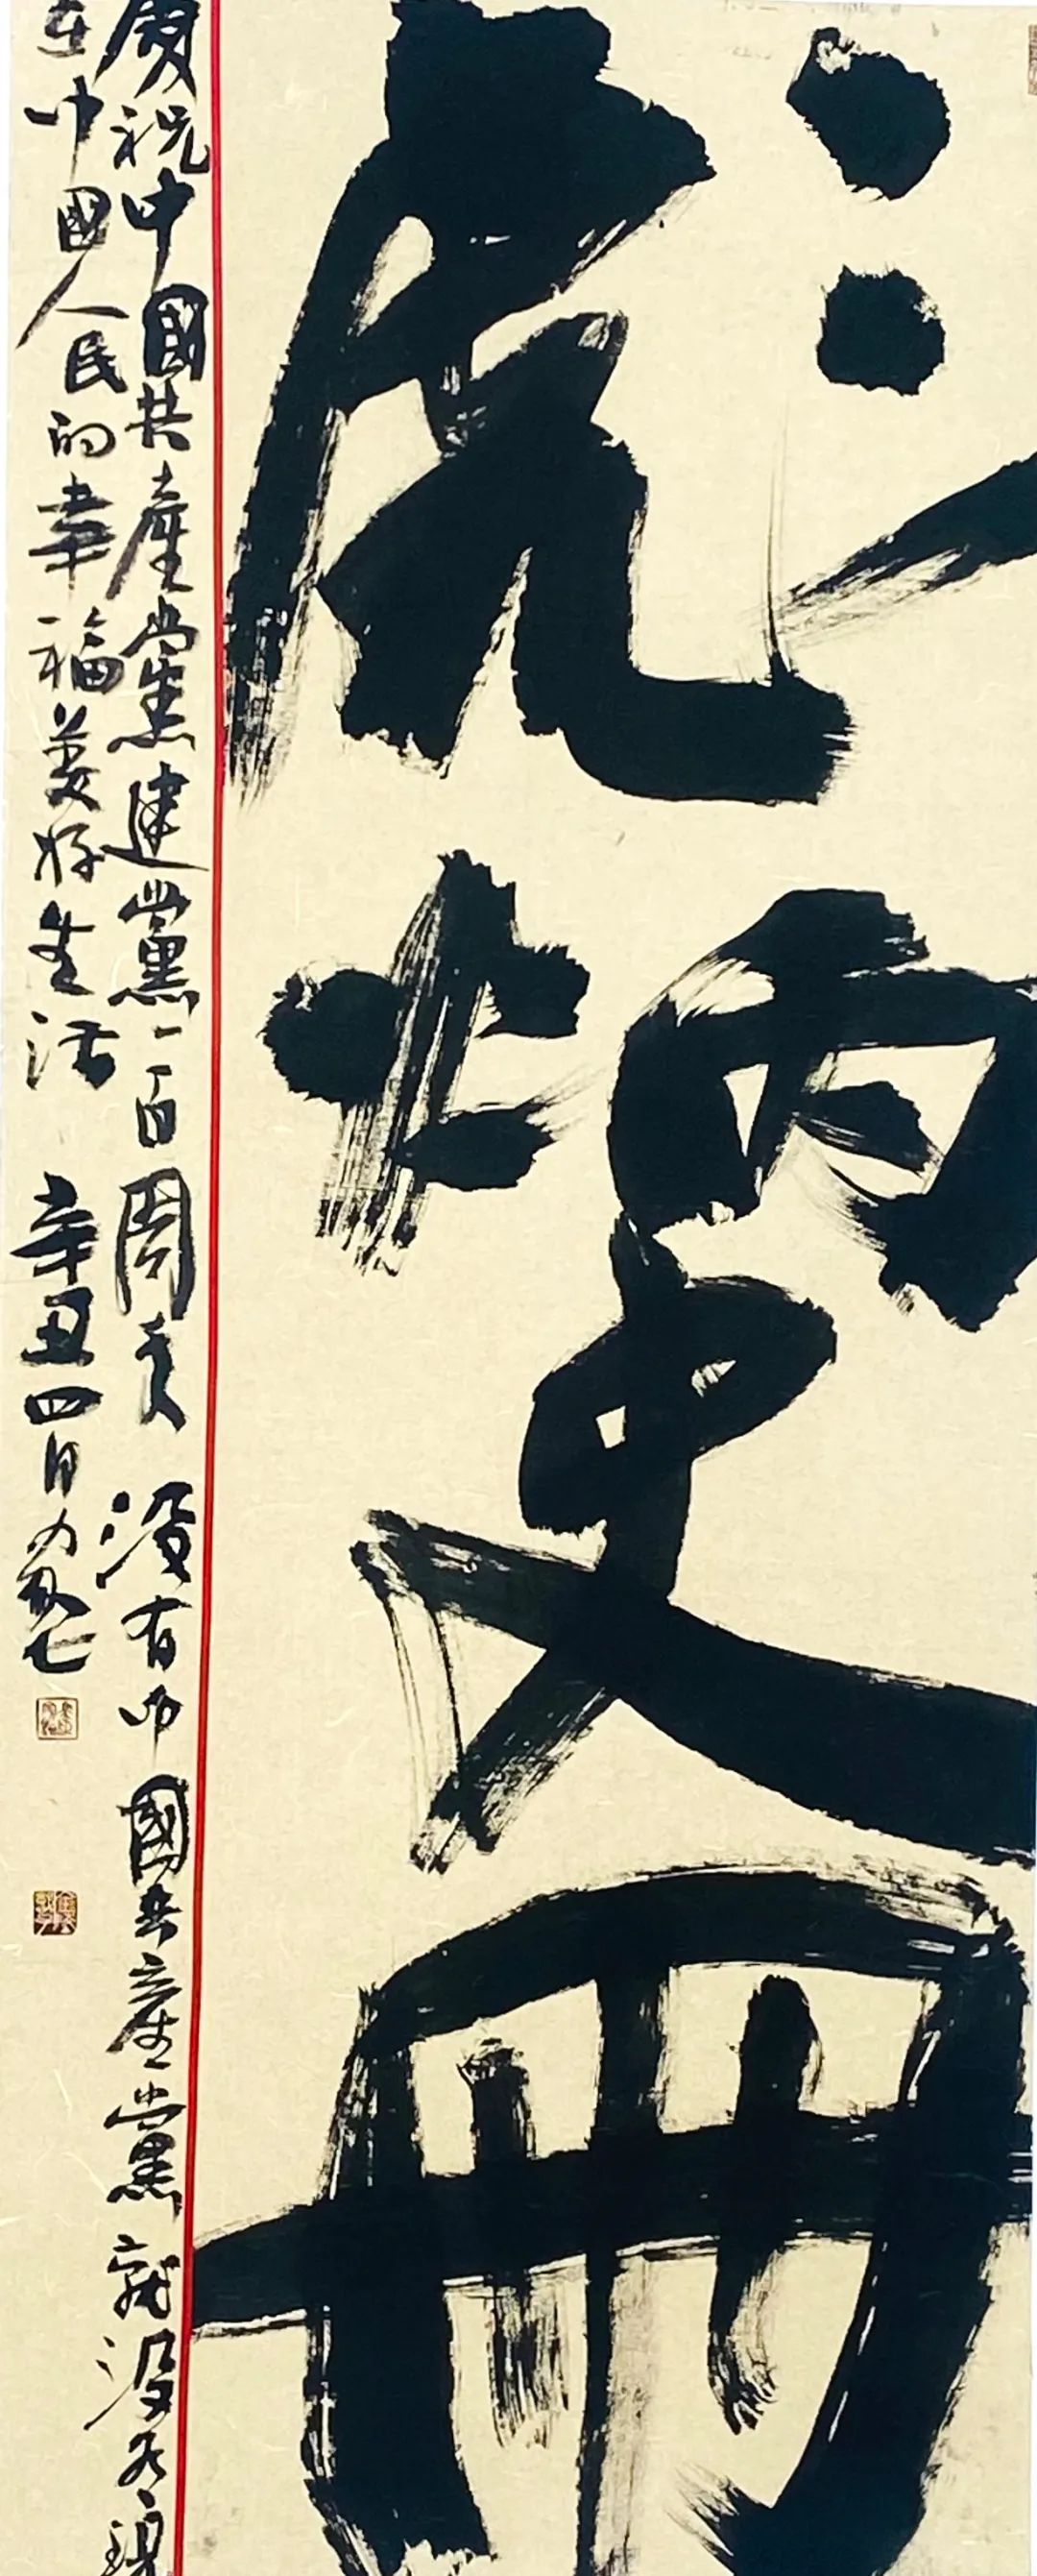 彪炳史冊
慶祝中國共產黨建黨一百周年 没有中國共產黨就没有現
在中國人民的幸福美好生活 辛丑四月